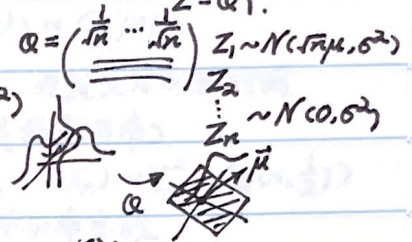 Z=QY.
Q = ( 1/√n ⋯ 1/√n ) Z₁ ~ N(√n μ, σ²)
Z₂
⋮
Zₙ ~ N(0, σ²)
²)
Q
μ⃗